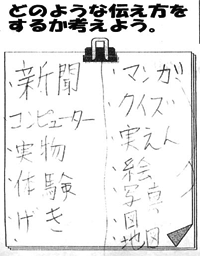 どのような伝え方を
するか考えよう。
・新聞
・コンピューター
・実物
・体験
・げき
・マンガ
・クイズ
・実えん
・絵
・写真
・図
・地図